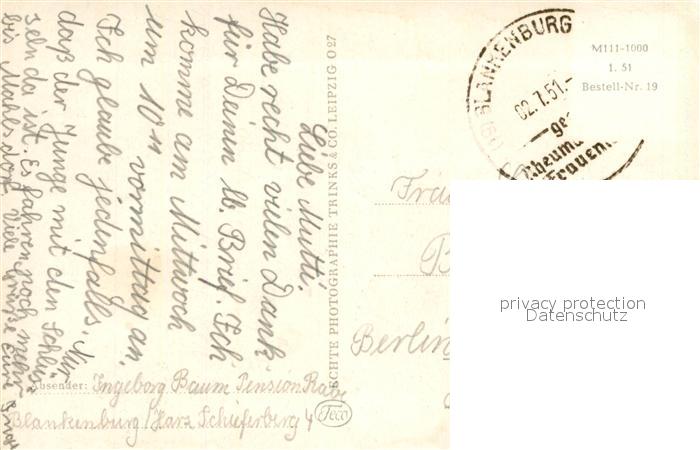 Liebe Mutti.
Habe recht vielen Dank
für Deinen lb. Brief. Ich
komme am Mittwoch
um 10 11 vormittag an.
Ich glaube jedenfalls. Nur
daß der Junge mit den Schlüs-
seln da ist. Es fahren noch mehr
bis Mahlsdorf. Viele Grüße Eure Inge
Absender: Ingeborg Baum Pension Rabe
Blankenburg/Harz Schieferberg 4
ECHTE PHOTOGRAPHIE TRINKS & CO. LEIPZIG O 27
Teco
BLANKENBURG
02.7.51.-
ge
Rheuma
Frauen
M111-1000
1. 51
Bestell-Nr. 19
Frau
B
Berlin
privacy protection
Datenschutz